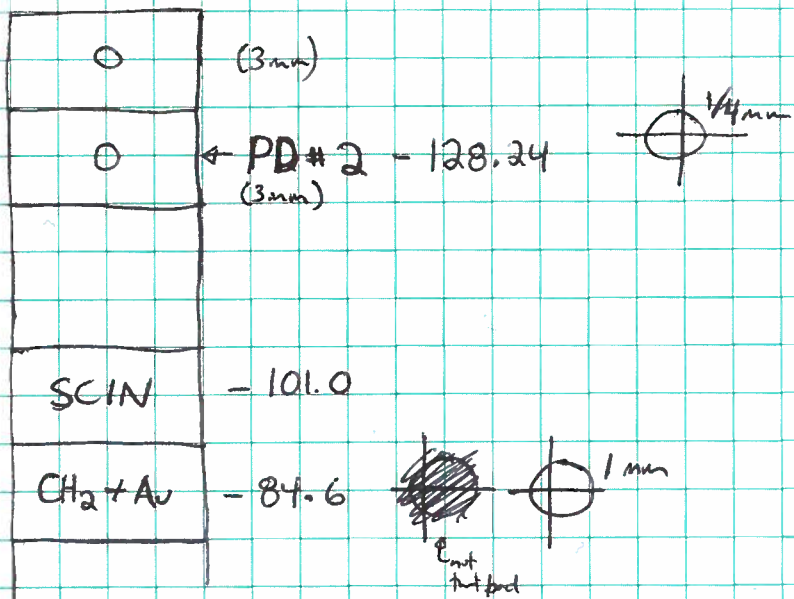 (3mm)
← PD#2 - 128.24
(3mm)
1/4 mm
SCIN - 101.0
CH₂ + Au - 84.6
1 mm
not
that bad